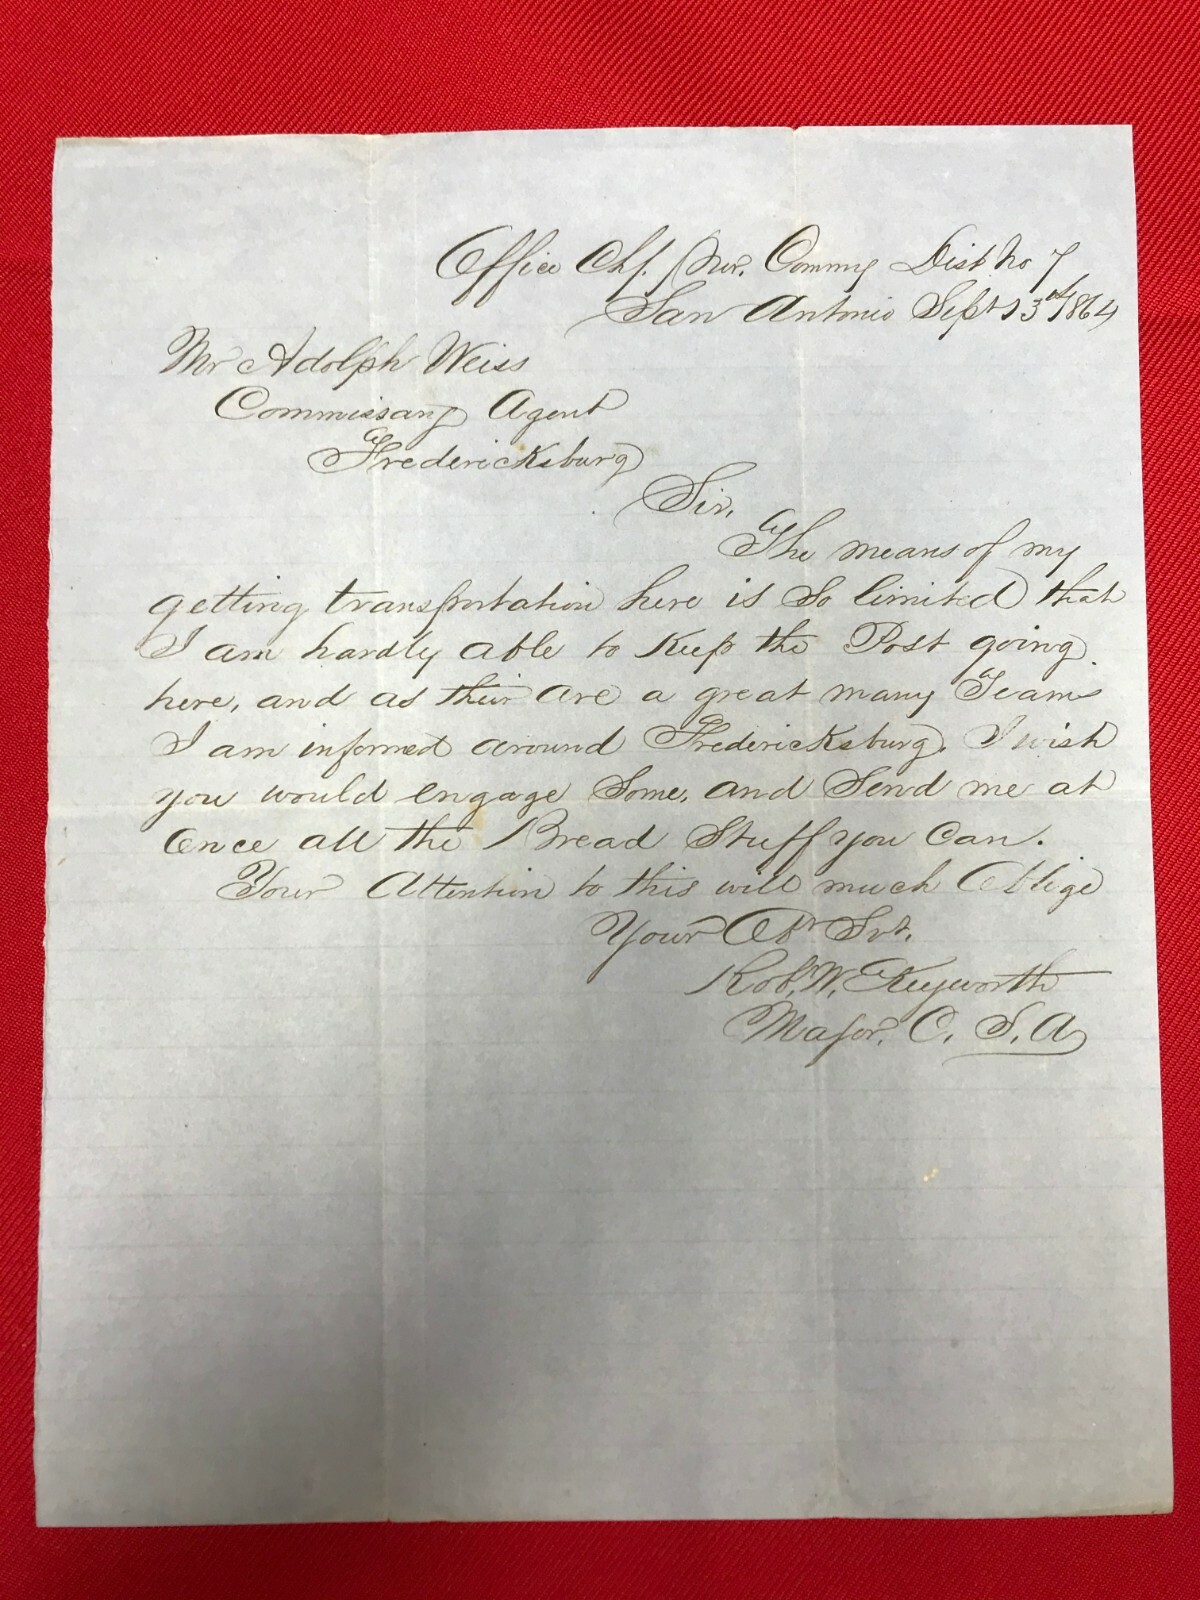 Office Chf. Pur. Commy Dist No 7
San Antonio Sept 13th 1864
Mr Adolph Weiss
Commissary Agent
Fredericksburg
Sir,
The means of my
getting transportation here is so limited that
I am hardly able to keep the Post going
here, and as their are a great many Teams
I am informed around Fredericksburg. I wish
you would engage Some, and Send me at
Once all the Bread Stuff you Can.
Your Attention to this will much Oblige
Your Obt Svt.
Robt. W. Keyworth
Major, C. S. A